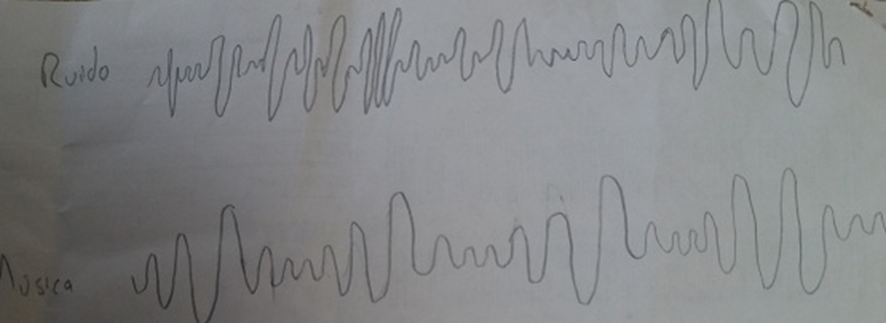 Ruido
Música